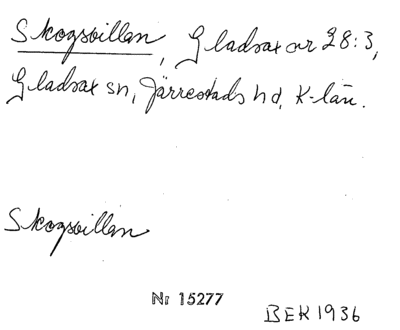 Skogsvillan, Gladsax nr 28:3,
Gladsax sn, Järrestads hd, K-län.
Skogsvillan
Nr 15277
BEK 1936